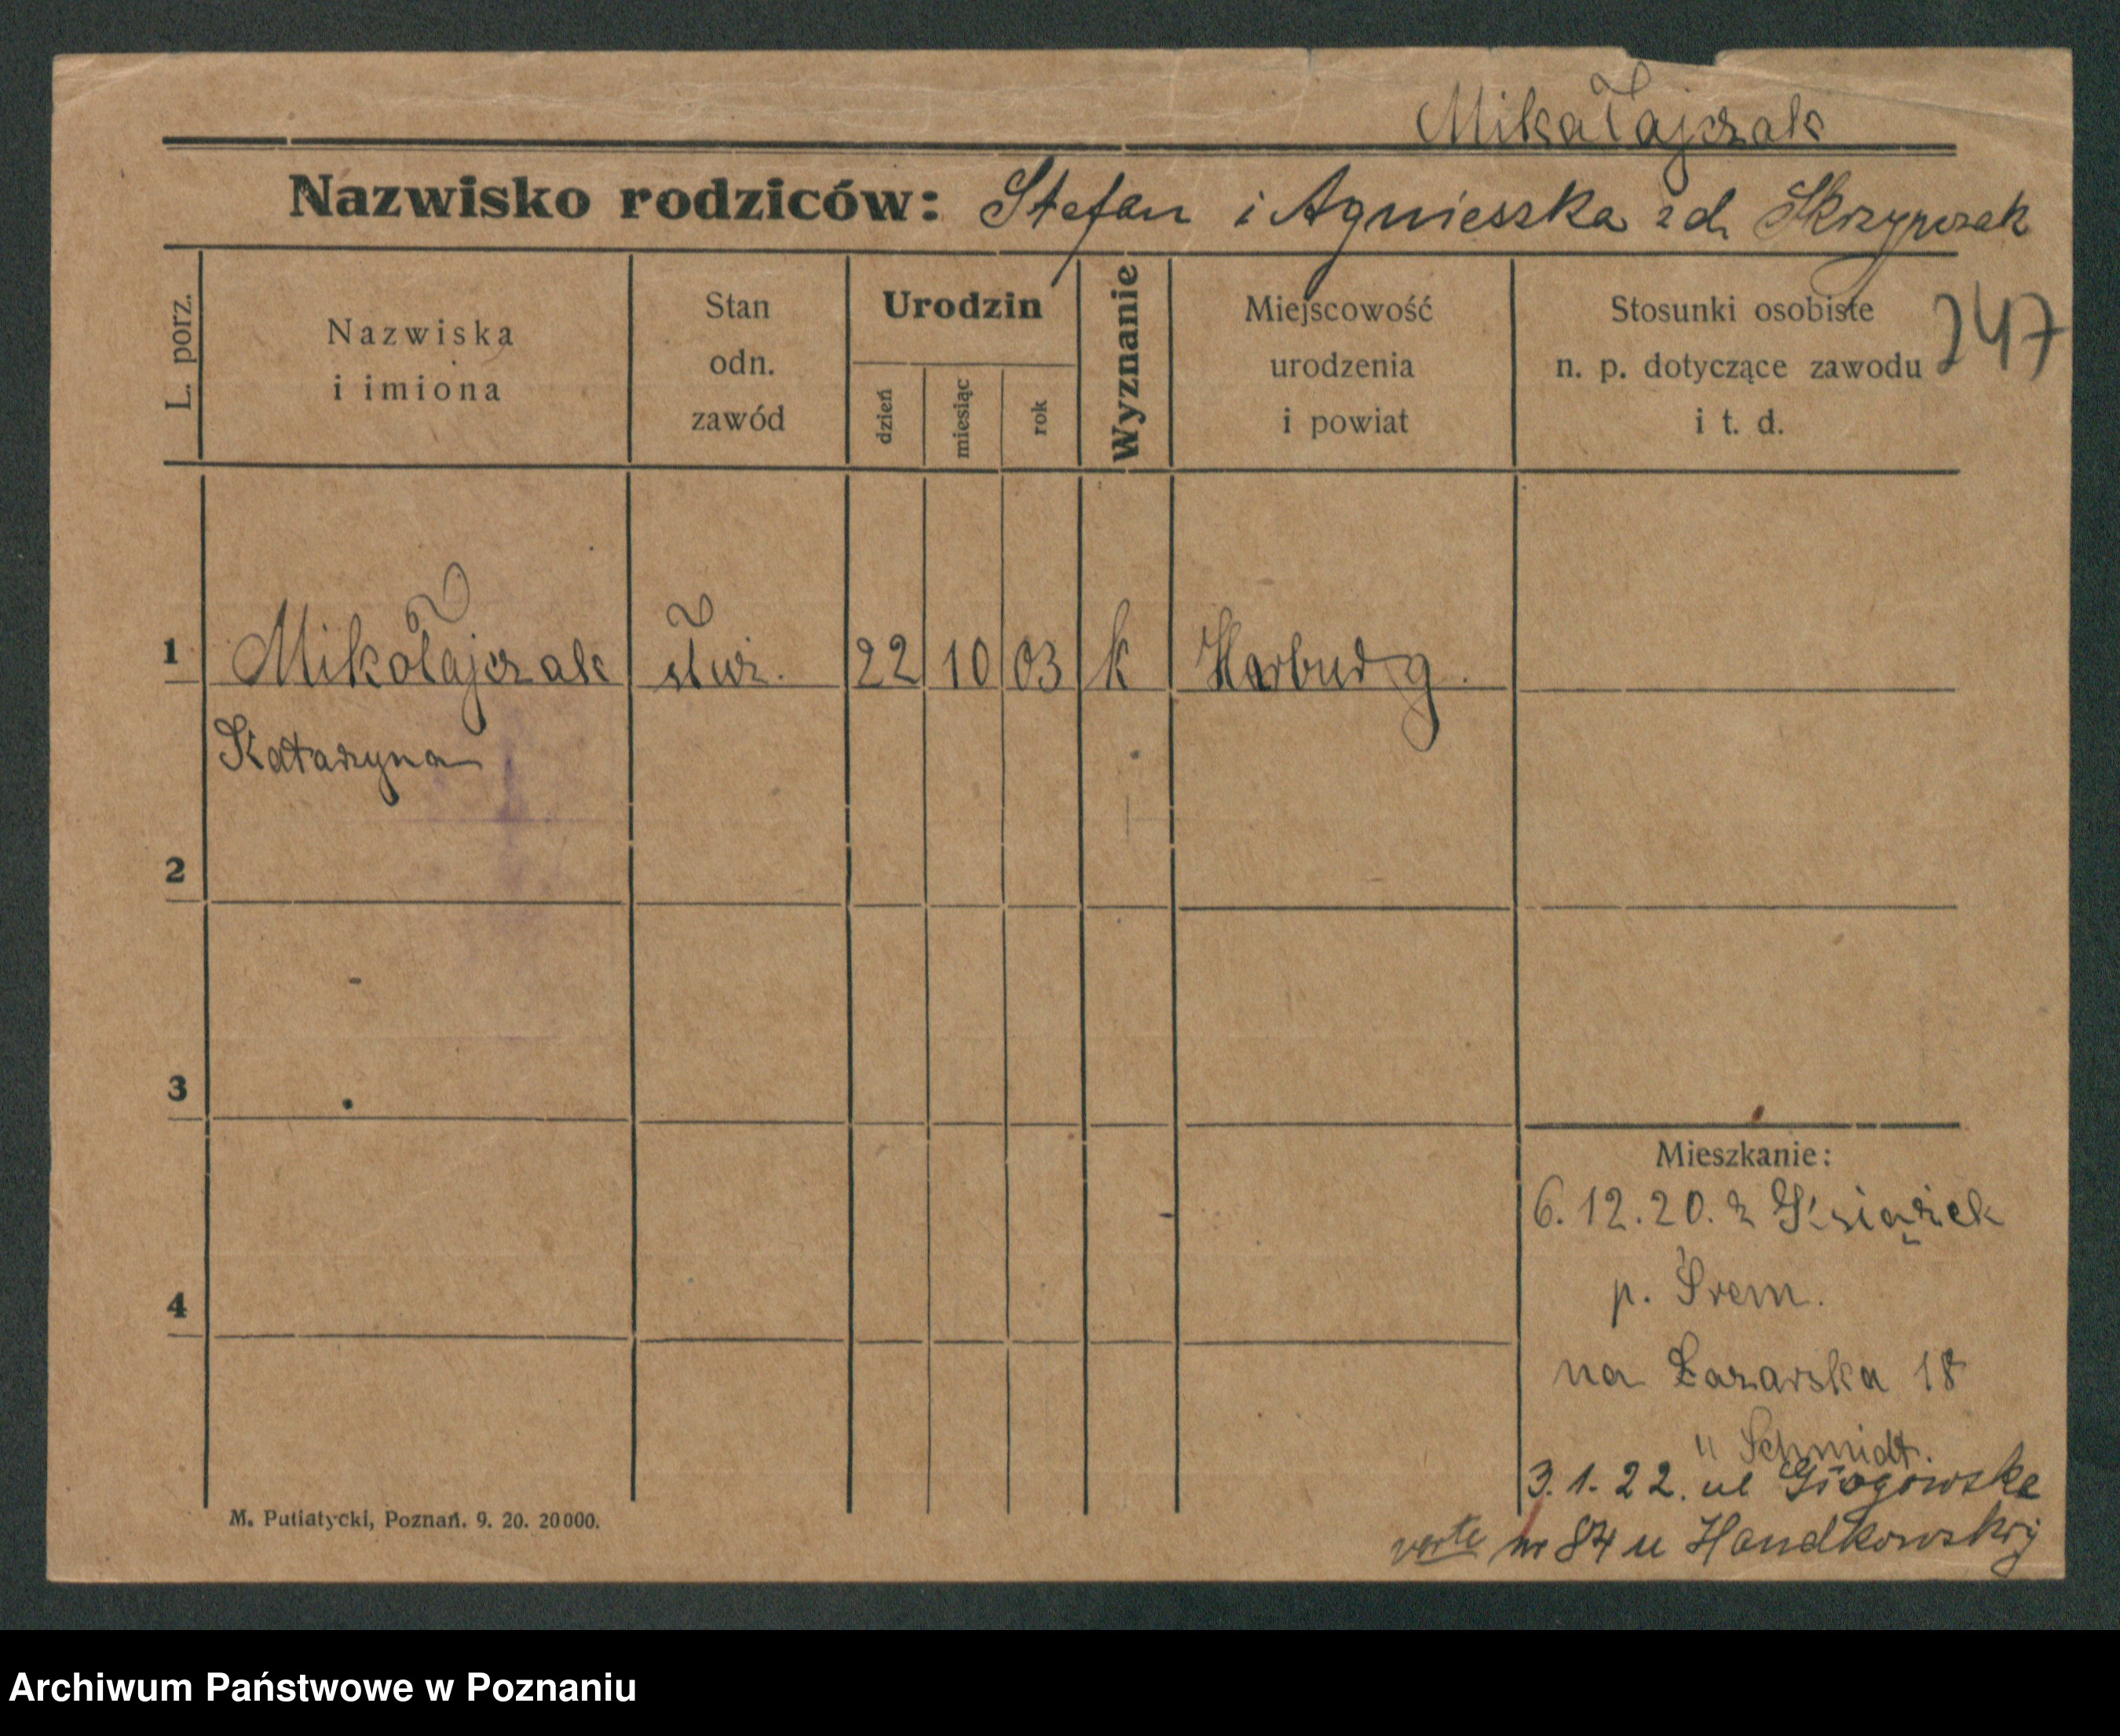 Mikałajczak
Nazwisko rodziców: Stefan i Agnieszka zd. Skrzypczak
247
L. porz.
Nazwiska
i imiona
Stan
odn.
zawód
Urodzin
dzień
miesiąc
rok
Wyznanie
Miejscowość
urodzenia
i powiat
Stosunki osobiste
n. p. dotyczące zawodu
i t. d.
1 Mikołajczak służ. 22 10 03 k
Katarzyna
2
3
4
Mieszkanie:
6.12.20. z Książek
p. Śrem.
na Łazarska 18
u Schmidt.
3.1.22. ul Głogowska
verte nr 84 u Handkowskiej
M. Putiatycki, Poznań. 9. 20. 20000.
Archiwum Państwowe w Poznaniu